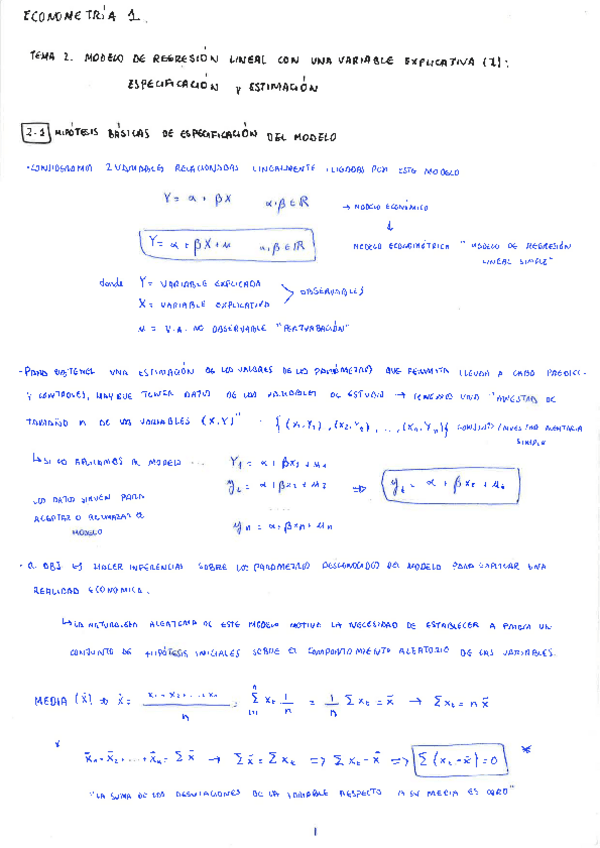 ECONOMETRÍA 1.
TEMA 2. MODELO DE REGRESIÓN LINEAL CON UNA VARIABLE EXPLICATIVA (I):
ESPECIFICACIÓN Y ESTIMACIÓN
2.1 HIPÓTESIS BÁSICAS DE ESPECIFICACIÓN DEL MODELO
2 VARIABLES RELACIONADAS LINEALMENTE POR ESTE MODELO
Y = α + βX α, β ∈ ℝ → MODELO ECONÓMICO
↓
Y = α + βX + u α, β ∈ ℝ MODELO ECONOMÉTRICO "MODELO DE REGRESIÓN
LINEAL SIMPLE"
donde Y = VARIABLE EXPLICADA
OBSERVABLES
X = VARIABLE EXPLICATIVA
u = V.A. NO OBSERVABLE "PERTURBACIÓN"
· PARA OBTENER UNA ESTIMACIÓN DE LOS VALORES DE LOS PARÁMETROS QUE PERMITA LLEVAR A CABO
Y CONTROLES, HAY QUE TENER DATOS DE LAS VARIABLES DE ESTUDIO → UNA "MUESTRA DE
TAMAÑO n DE LAS VARIABLES (X,Y)" · {(X₁,Y₁), (X₂,Y₂), ..., (Xₙ,Yₙ)}
SIMPLE
↳ SI LO APLICAMOS AL MODELO ... Y₁ = α + βx₁ + u₁
y₂ = α + βx₂ + u₂ ⇒ yₜ = α + βxₜ + uₜ
LOS DATOS SIRVEN PARA
ACEPTAR O RECHAZAR EL
MODELO
yₙ = α + βxₙ + uₙ
HACER INFERENCIAS SOBRE LOS PARÁMETROS DESCONOCIDOS DEL MODELO PARA EXPLICAR UNA
REALIDAD ECONÓMICA.
↳ LA NATURALEZA ALEATORIA DE ESTE MODELO MOTIVA LA NECESIDAD DE ESTABLECER A PARTIR UN
CONJUNTO DE HIPÓTESIS INICIALES SOBRE EL COMPORTAMIENTO ALEATORIO DE LAS VARIABLES.
MEDIA (x̄) → x̄ = Σ xₜ 1/n = 1/n Σ xₜ = x̄ → Σxₜ = n x̄
* → Σ x̄ = Σ xₜ => Σ xₜ - x̄ => Σ (xₜ - x̄) = 0 *
"LA SUMA DE LAS DESVIACIONES DE LA VARIABLE RESPECTO A SU MEDIA ES CERO"
1